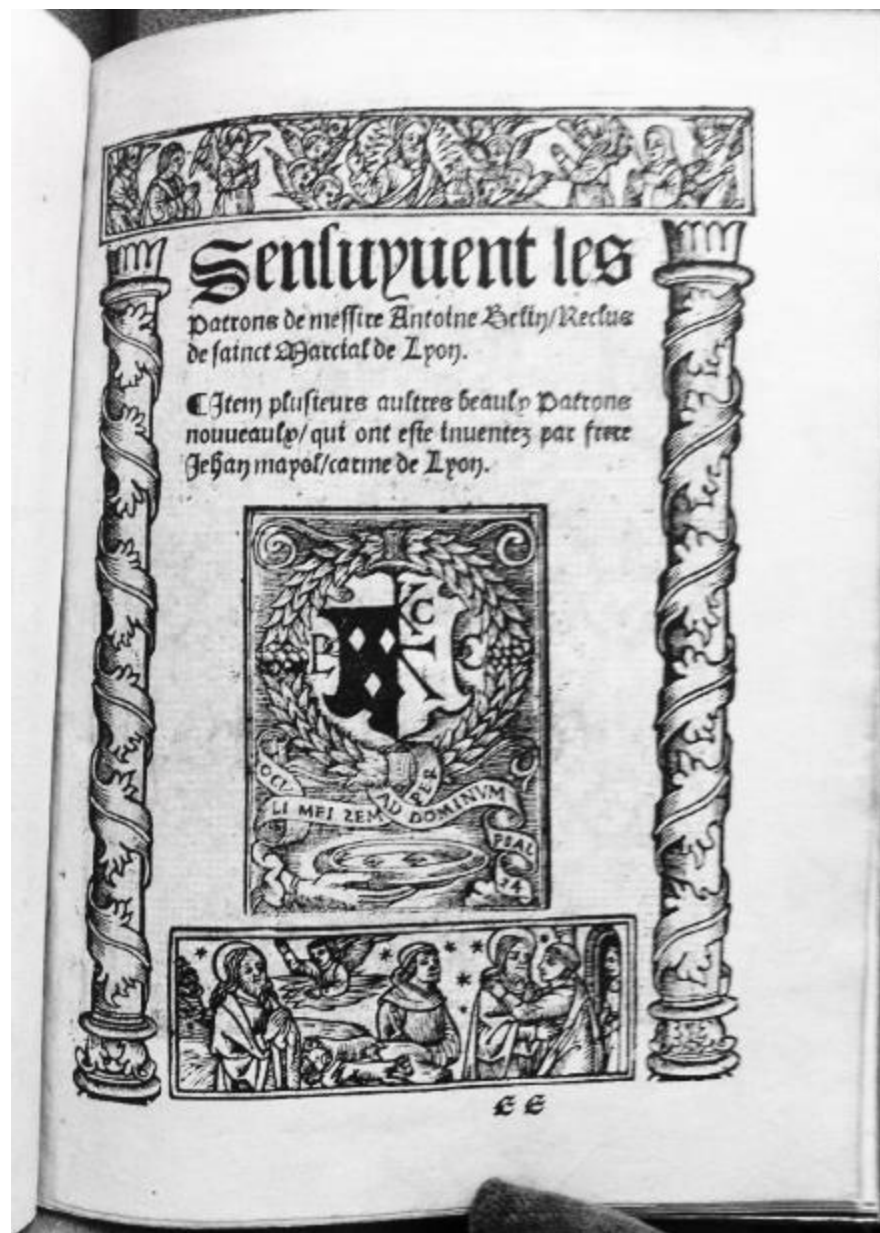 Sensuyuent les
Patrons de messire Antoine Belin/Reclus
de sainct Marcial de Lyon.
¶Item plusieurs aultres beaulx Patrons
nouueaulx/ qui ont este inuentez par frere
Jehan mayol/carme de Lyon.
P C C
OCVLI MEI SEMPER AD DOMINVM
PSAL
24
E E